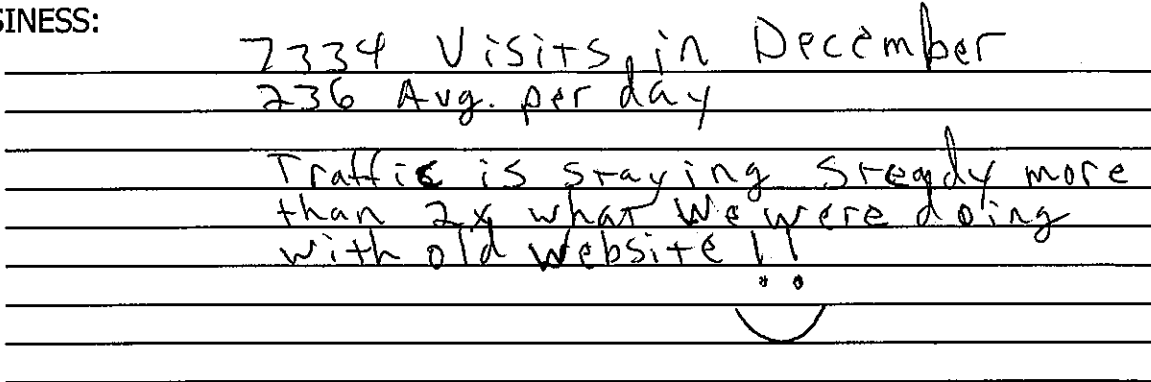 SINESS:
7334 Visits in December
236 Avg. per day
Traffic is staying steady more
than 2x what we were doing
with old website !!